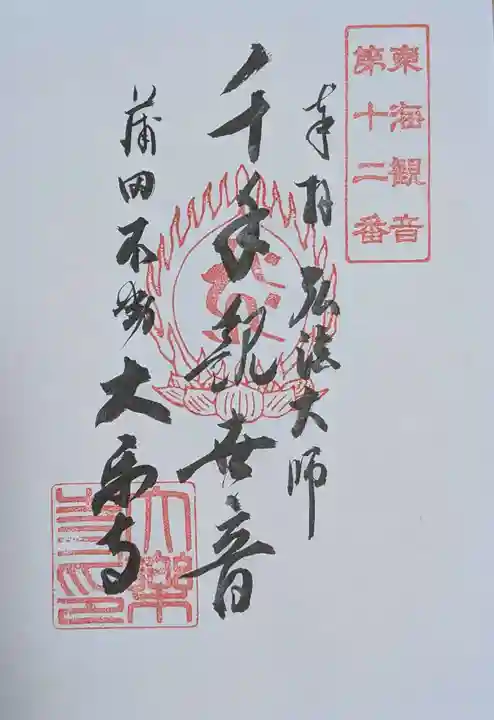 東海観音
第十二番
奉拝 弘法大師
千手観世音
蒲田不動 大楽寺
大楽
寺印